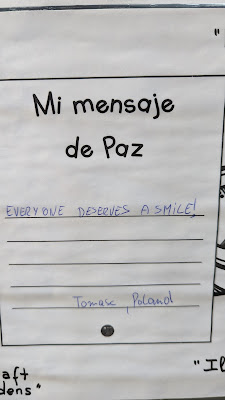 "
Mi mensaje
de Paz
EVERYONE DESERVES A SMILE!
Tomasz, Poland
"Il
aft
dens"